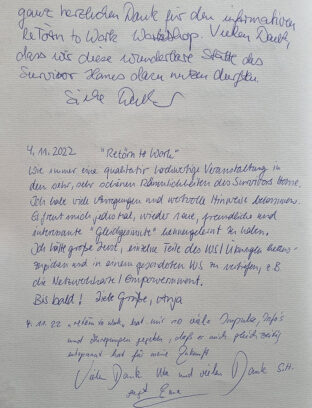 ganz herzlichen Dank für den informativen
ReTörn to Work Workshop. Vielen Dank,
dass wir diese wunderbare Stätte des
Survivor Homes dazu nutzen durften.
4.11.2022 "Retörn to Work"
Wie immer eine qualitativ hochwertige Veranstaltung in
den sehr, sehr schönen Räumlichkeiten des Survivors Home.
Ich habe viele Anregungen und wertvolle Hinweise bekommen.
Es freut mich, jedes mal, wieder neue, freundliche und
interessante "Gleichgesinnte" kennengelernt zu haben.
Ich hätte große Lust, einzelne Teile des WS / Übungen
und in einem gesonderten WS zu vertiefen, z.B.
die Netzwerkkarte / Empowerment.
Bis bald! Liebe Grüße, Anja
4.11.22 "Retörn to Work" hat mir so viele Impulse, Info's
und Anregungen gegeben, daß er mich gleichzeitig
entspannt hat für meine Zukunft
Vielen Dank und vielen Dank S.H.
sagt